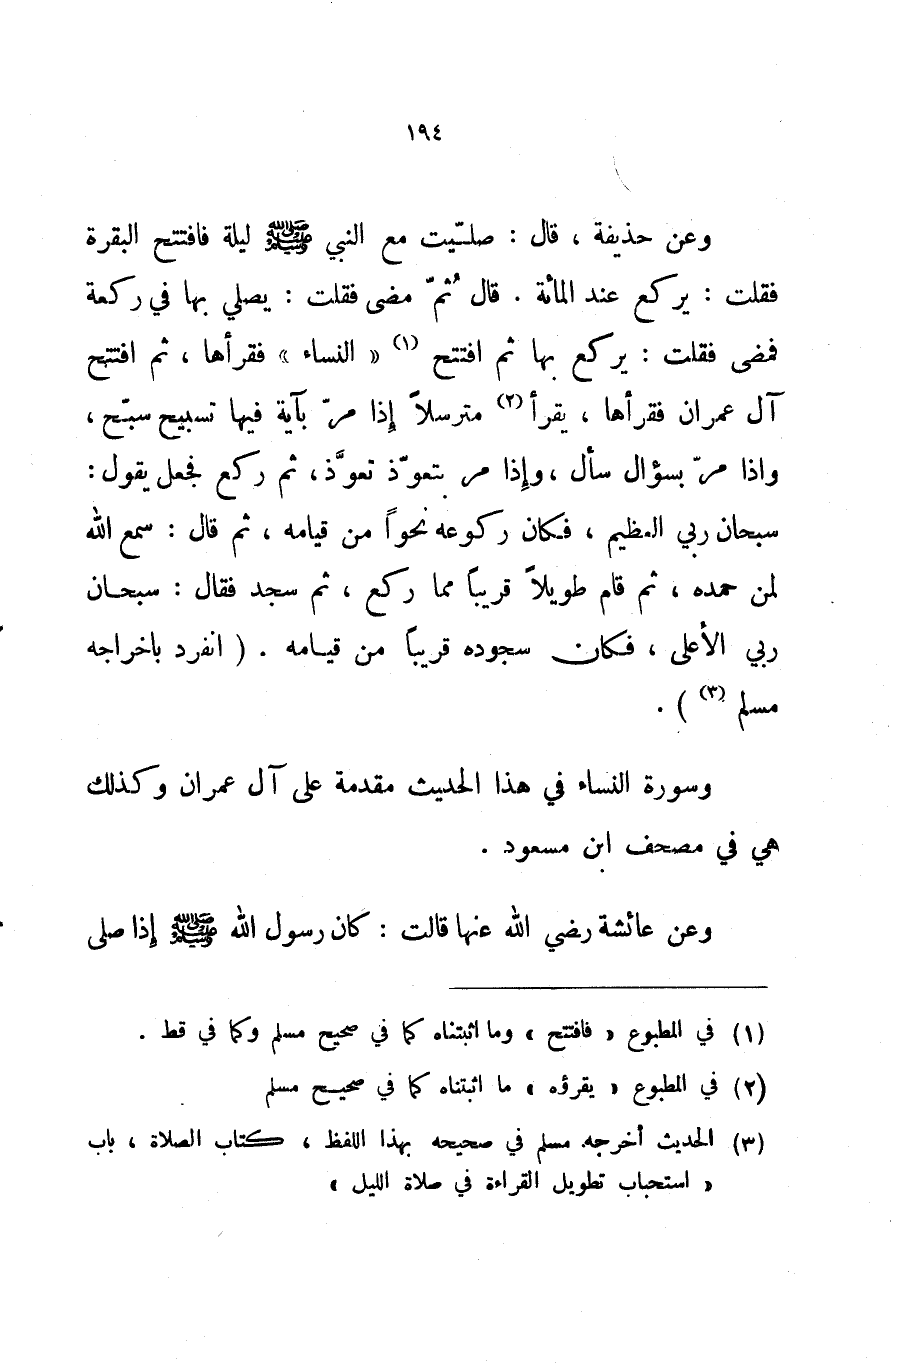 ١٩٤
وعن حذيفة ، قال : صلـّيت مع النبي ﷺ ليلة فافتتح البقرة
فقلت : يركع عند المأئة . قال ُثمّ مضى فقلت : يصلي بها في ركعة
فمضى فقلت : يركع بها ثم افتتح (١) « النساء » فقرأها ، ثم افتتح
آل عمران فقرأها ، يقرأ (٢) مترسلاً إذا مرّ بآية فيها تسبيح سبّح ،
واذا مرّ بسؤال سأل ، وإذا مر بتعوّذ تعوَّذ ، ثم ركع فجعل يقول :
سبحان ربي العظيم ، فكان ركوعه نحواً من قيامه ، ثم قال : سمع الله
لمن حمده ، ثم قام طويلاً قريباً مما ركع ، ثم سجد فقال : سبحـان
ربي الأعلى ، فكان سجوده قريباً من قيـامه . ( انفرد باخراجه
مسلم (٣) ) .
وسورة النساء في هذا الحديث مقدمة على آل عمران وكذلك
هي في مصحف ابن مسعود .
وعن عائشة رضي الله عنها قالت : كان رسول الله ﷺ إذا صلى
(١) في المطبوع « فافتتح » وما اثبتناه كما في صحيح مسلم وكما في قط .
(٢) في المطبوع « يقرؤه » ما اثبتناه كما في صحيـح مسلم
(٣) الحديث أخرجه مسلم في صحيحه بهذا اللفظ ، كتاب الصلاة ، باب
« استحباب تطويل القراءة في صلاة الليل »